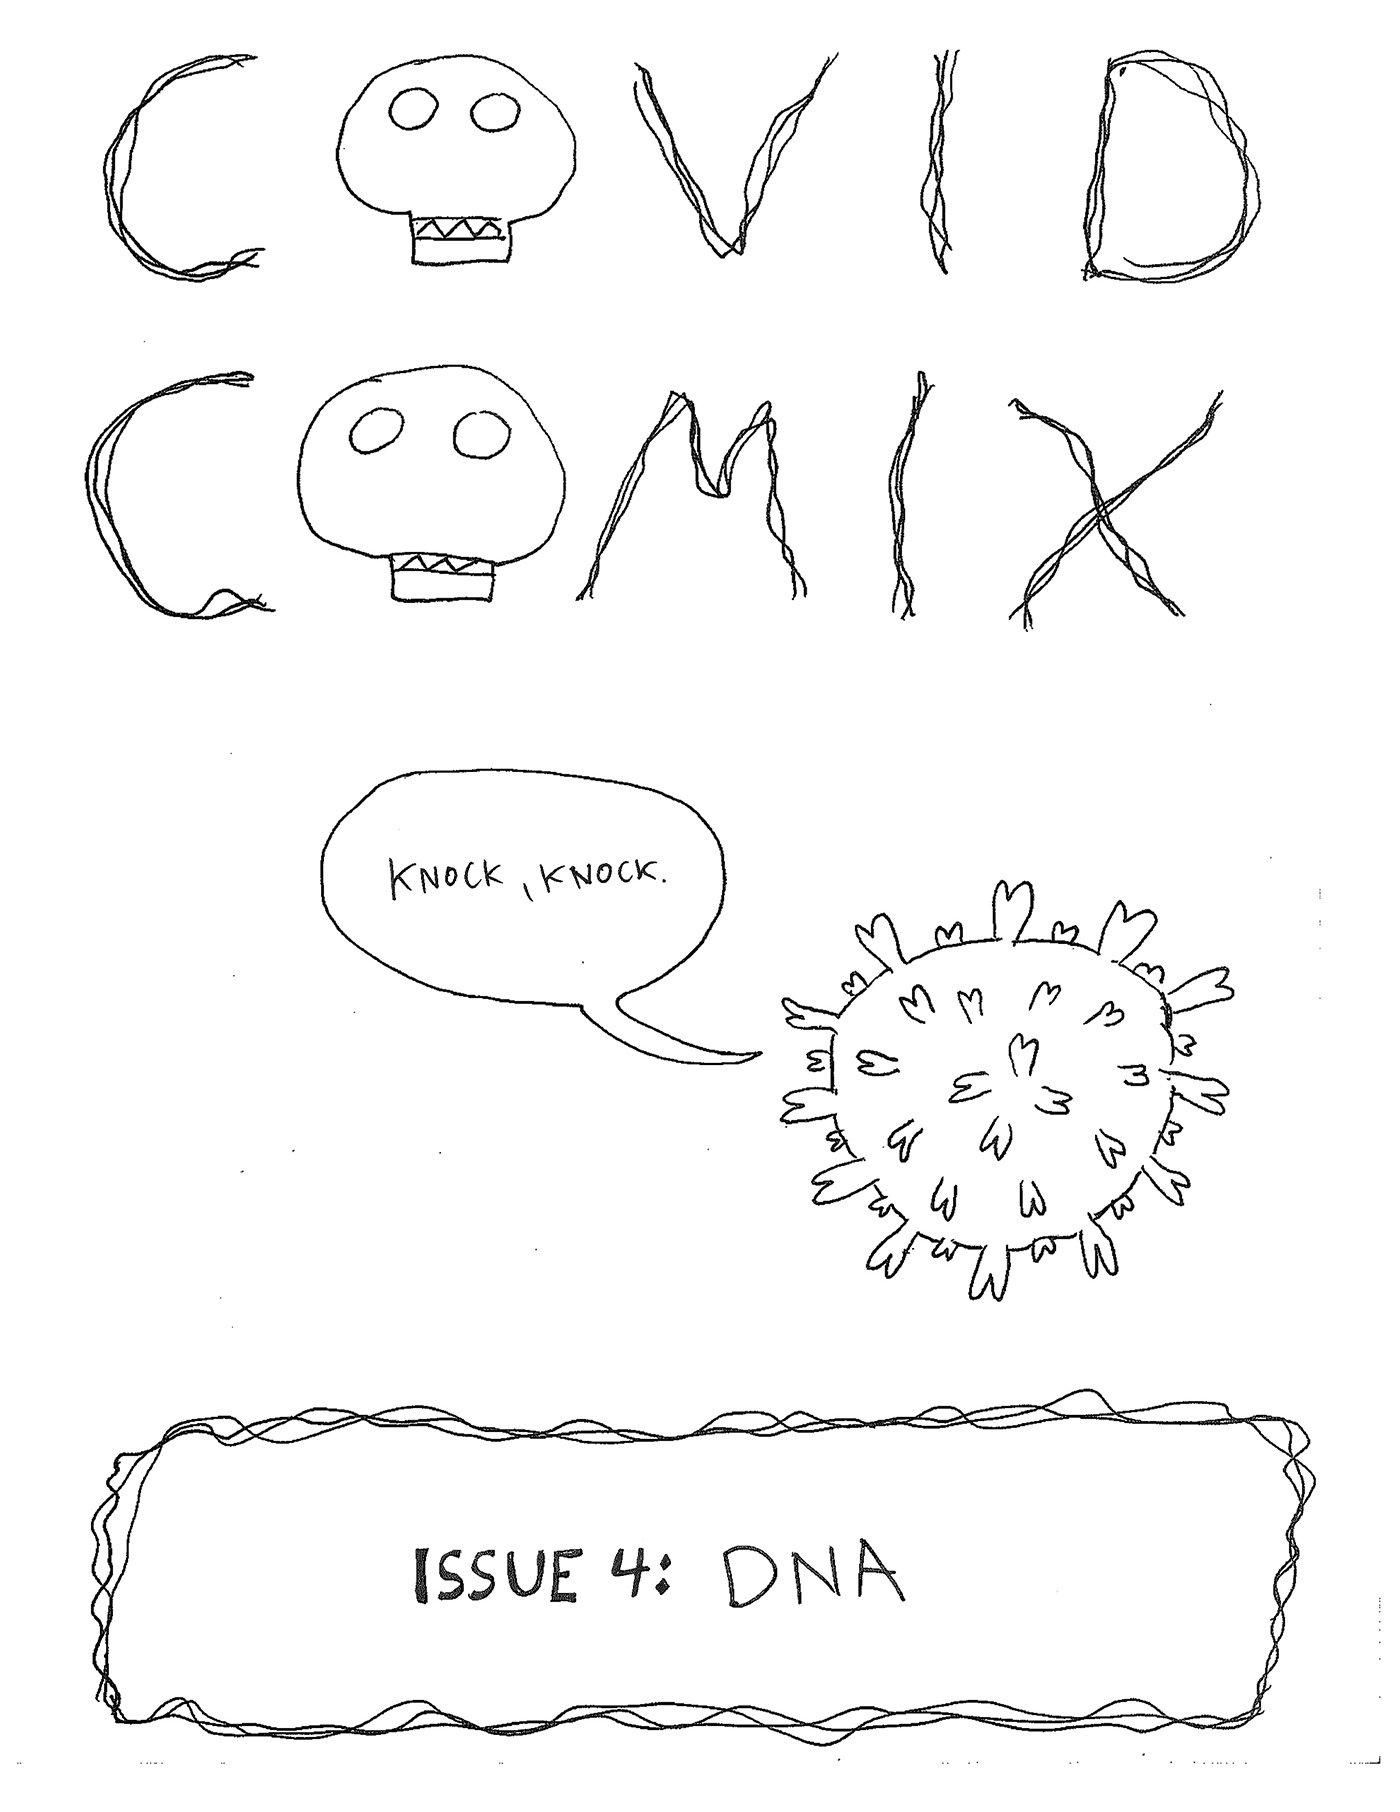 COVID
COMIX
KNOCK, KNOCK.
ISSUE 4: DNA